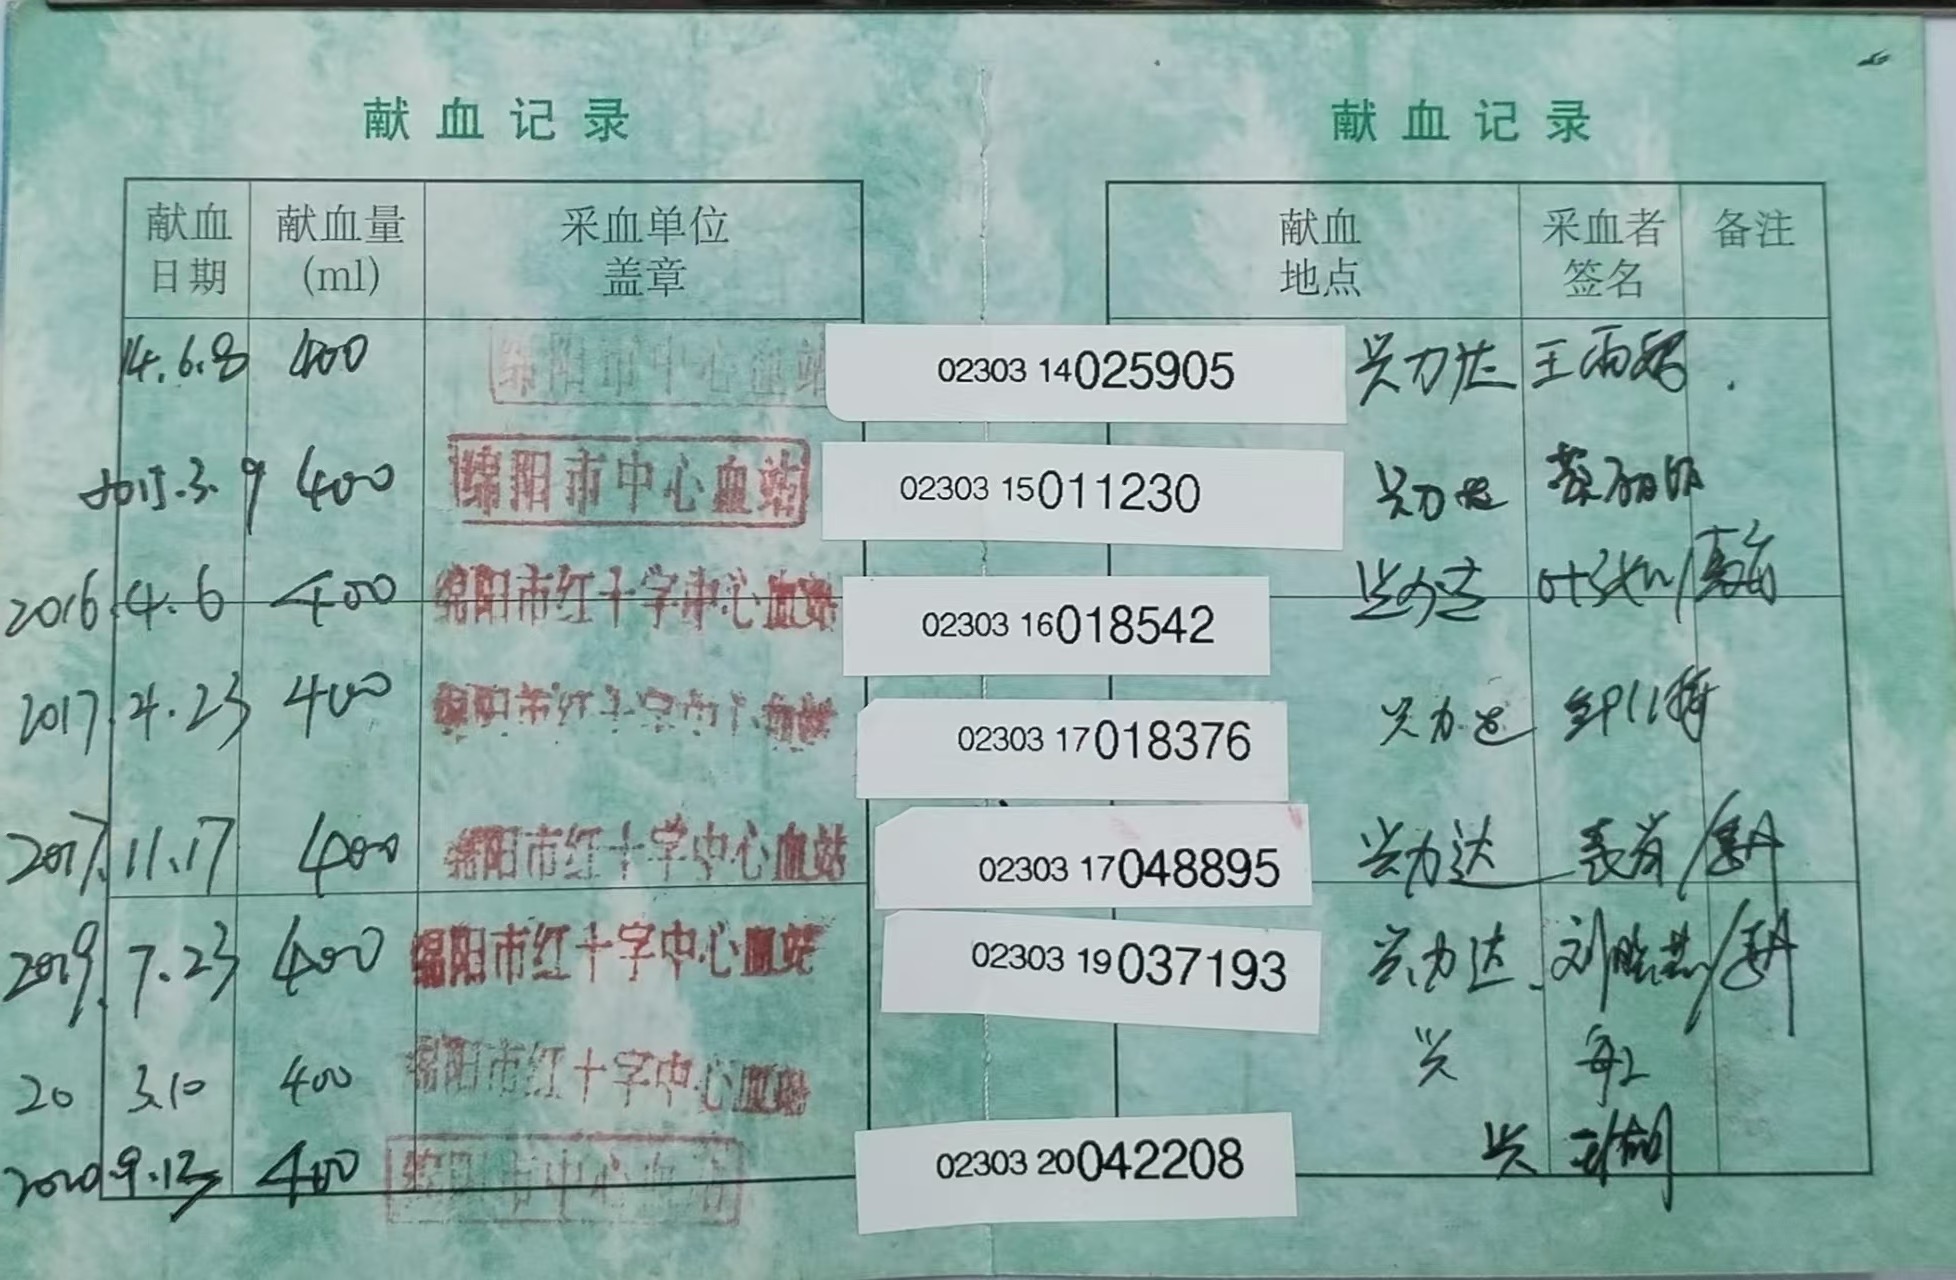 献血记录
献血记录
献血日期 献血量(ml) 采血单位盖章 献血地点 采血者签名 备注
14.6.8 400 绵阳市中心血站 02303 14025905 兴力达 王雨
2015.3.9 400 绵阳市中心血站 02303 15011230 兴力达
2016.4.6 400 绵阳市红十字中心血站 02303 16018542 兴力达
2017.4.23 400 绵阳市红十字中心血站 02303 17018376 兴力达
2017.11.17 400 绵阳市红十字中心血站 02303 17048895 兴力达
2019.7.23 400 绵阳市红十字中心血站 02303 19037193 兴力达 刘
20 3.10 400 绵阳市红十字中心血站 兴
2020.9.13 400 绵阳市中心血站 02303 20042208 兴